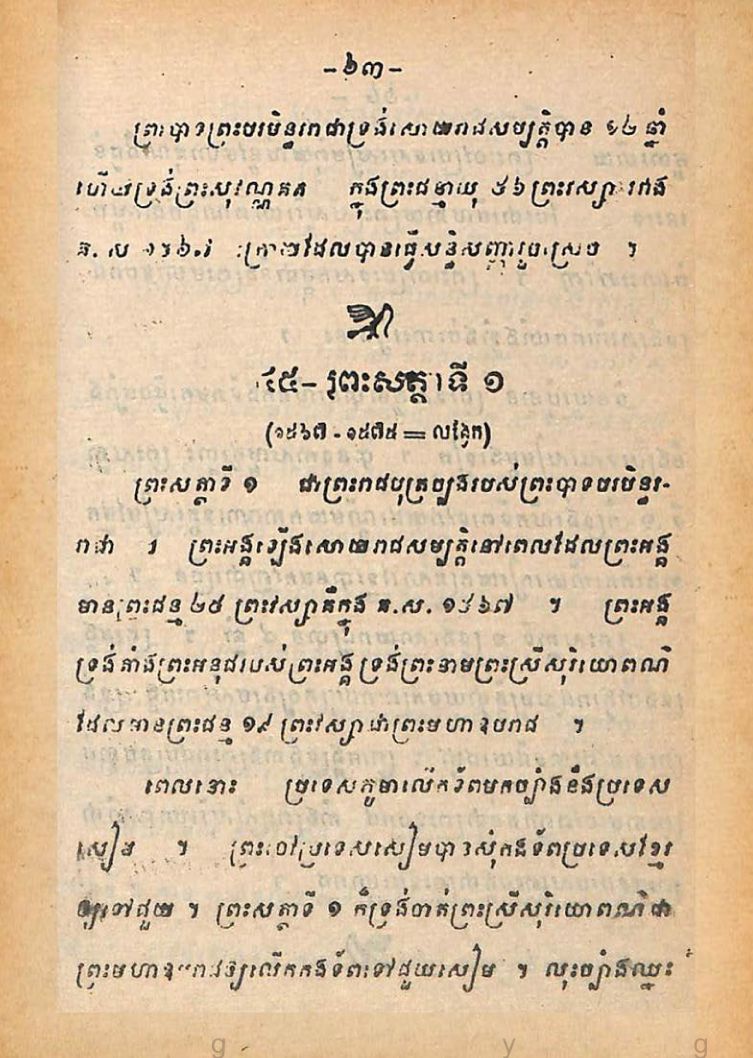 -៦៣-
ព្រះបាទព្រះបរមិន្ទរាជាទ្រង់សោយរាជសម្បត្តិបាន ១២ ឆ្នាំ
ហើយទ្រង់ព្រះសុវណ្ណគត ក្នុងព្រះជន្មាយុ ៥៦ ព្រះវស្សា
គ. ស ក្រោយដែលបានធ្វើសន្ធិសញ្ញារួចស្រេច ។
៤៥- ព្រះសត្ថាទី ១
(១៥៦៧ - ១៥៧៥ = លង្វែក)
ព្រះសត្ថាទី ១ ជាព្រះរាជបុត្រច្បងរបស់ព្រះបាទបរមិន្ទរ-
រាជា ។ ព្រះអង្គឡើងសោយរាជសម្បត្តិនៅពេលដែលព្រះអង្គ
មានព្រះជន្ម ២៨ ព្រះវស្សាគឺក្នុង គ.ស. ១៥៦៧ ។ ព្រះអង្គ
ទ្រង់តាំងព្រះអនុជរបស់ព្រះអង្គ ទ្រង់ព្រះនាមព្រះស្រីសុរិយោពណ៌
ដែលមានព្រះជន្ម ១៩ ព្រះវស្សាជាព្រះមហាឧបរាជ ។
ពេលនោះ ប្រទេសភូមាលើកទ័ពមកច្បាំងនឹងប្រទេស
សៀម ។ ព្រះចៅប្រទេសសៀមបានសុំកងទ័ពប្រទេសខ្មែរ
ឲ្យទៅជួយ ។ ព្រះសត្ថាទី ១ ក៏ទ្រង់ចាត់ព្រះស្រីសុរិយោពណ៌ជា
ព្រះមហាឧបរាជឲ្យលើកកងទ័ពទៅជួយសៀម ។ លុះច្បាំងឈ្នះ
g y g